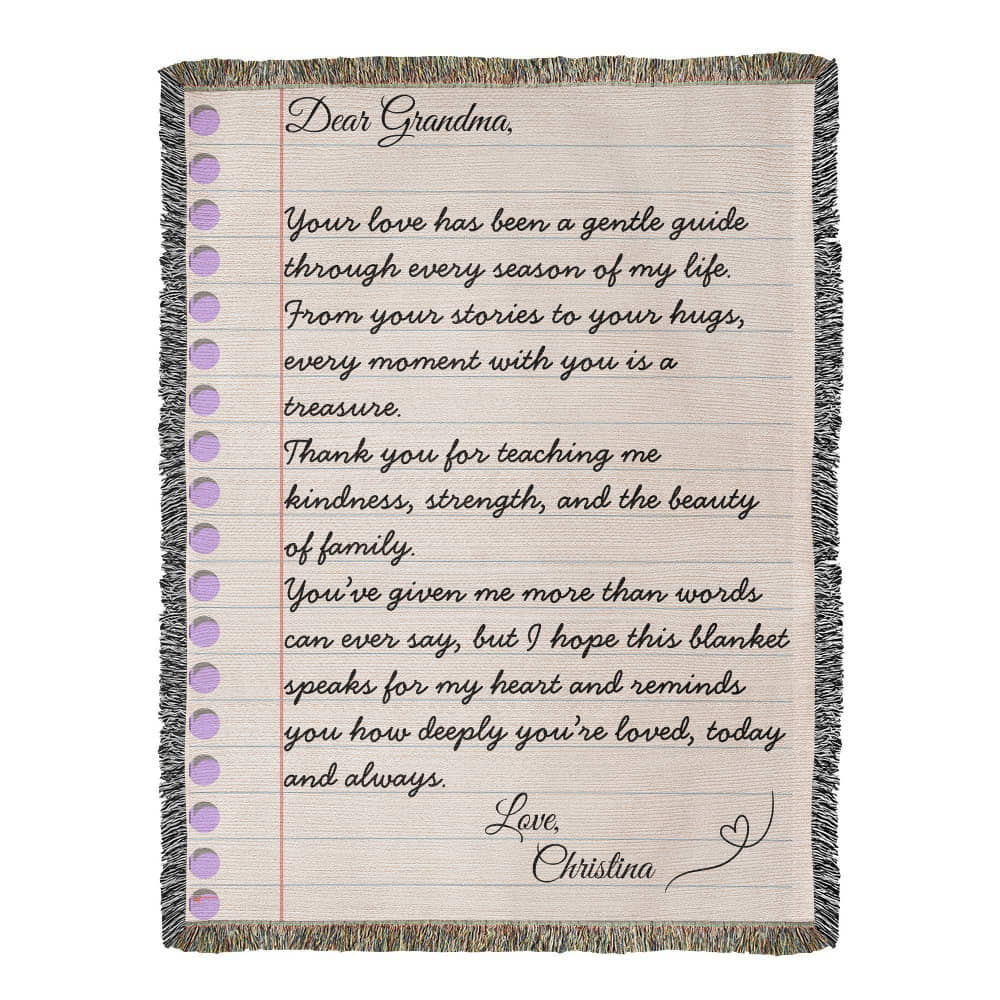 Dear Grandma,
Your love has been a gentle guide
through every season of my life.
From your stories to your hugs,
every moment with you is a
treasure.
Thank you for teaching me
kindness, strength, and the beauty
of family.
You've given me more than words
can ever say, but I hope this blanket
speaks for my heart and reminds
you how deeply you're loved, today
and always.
Love,
Christina